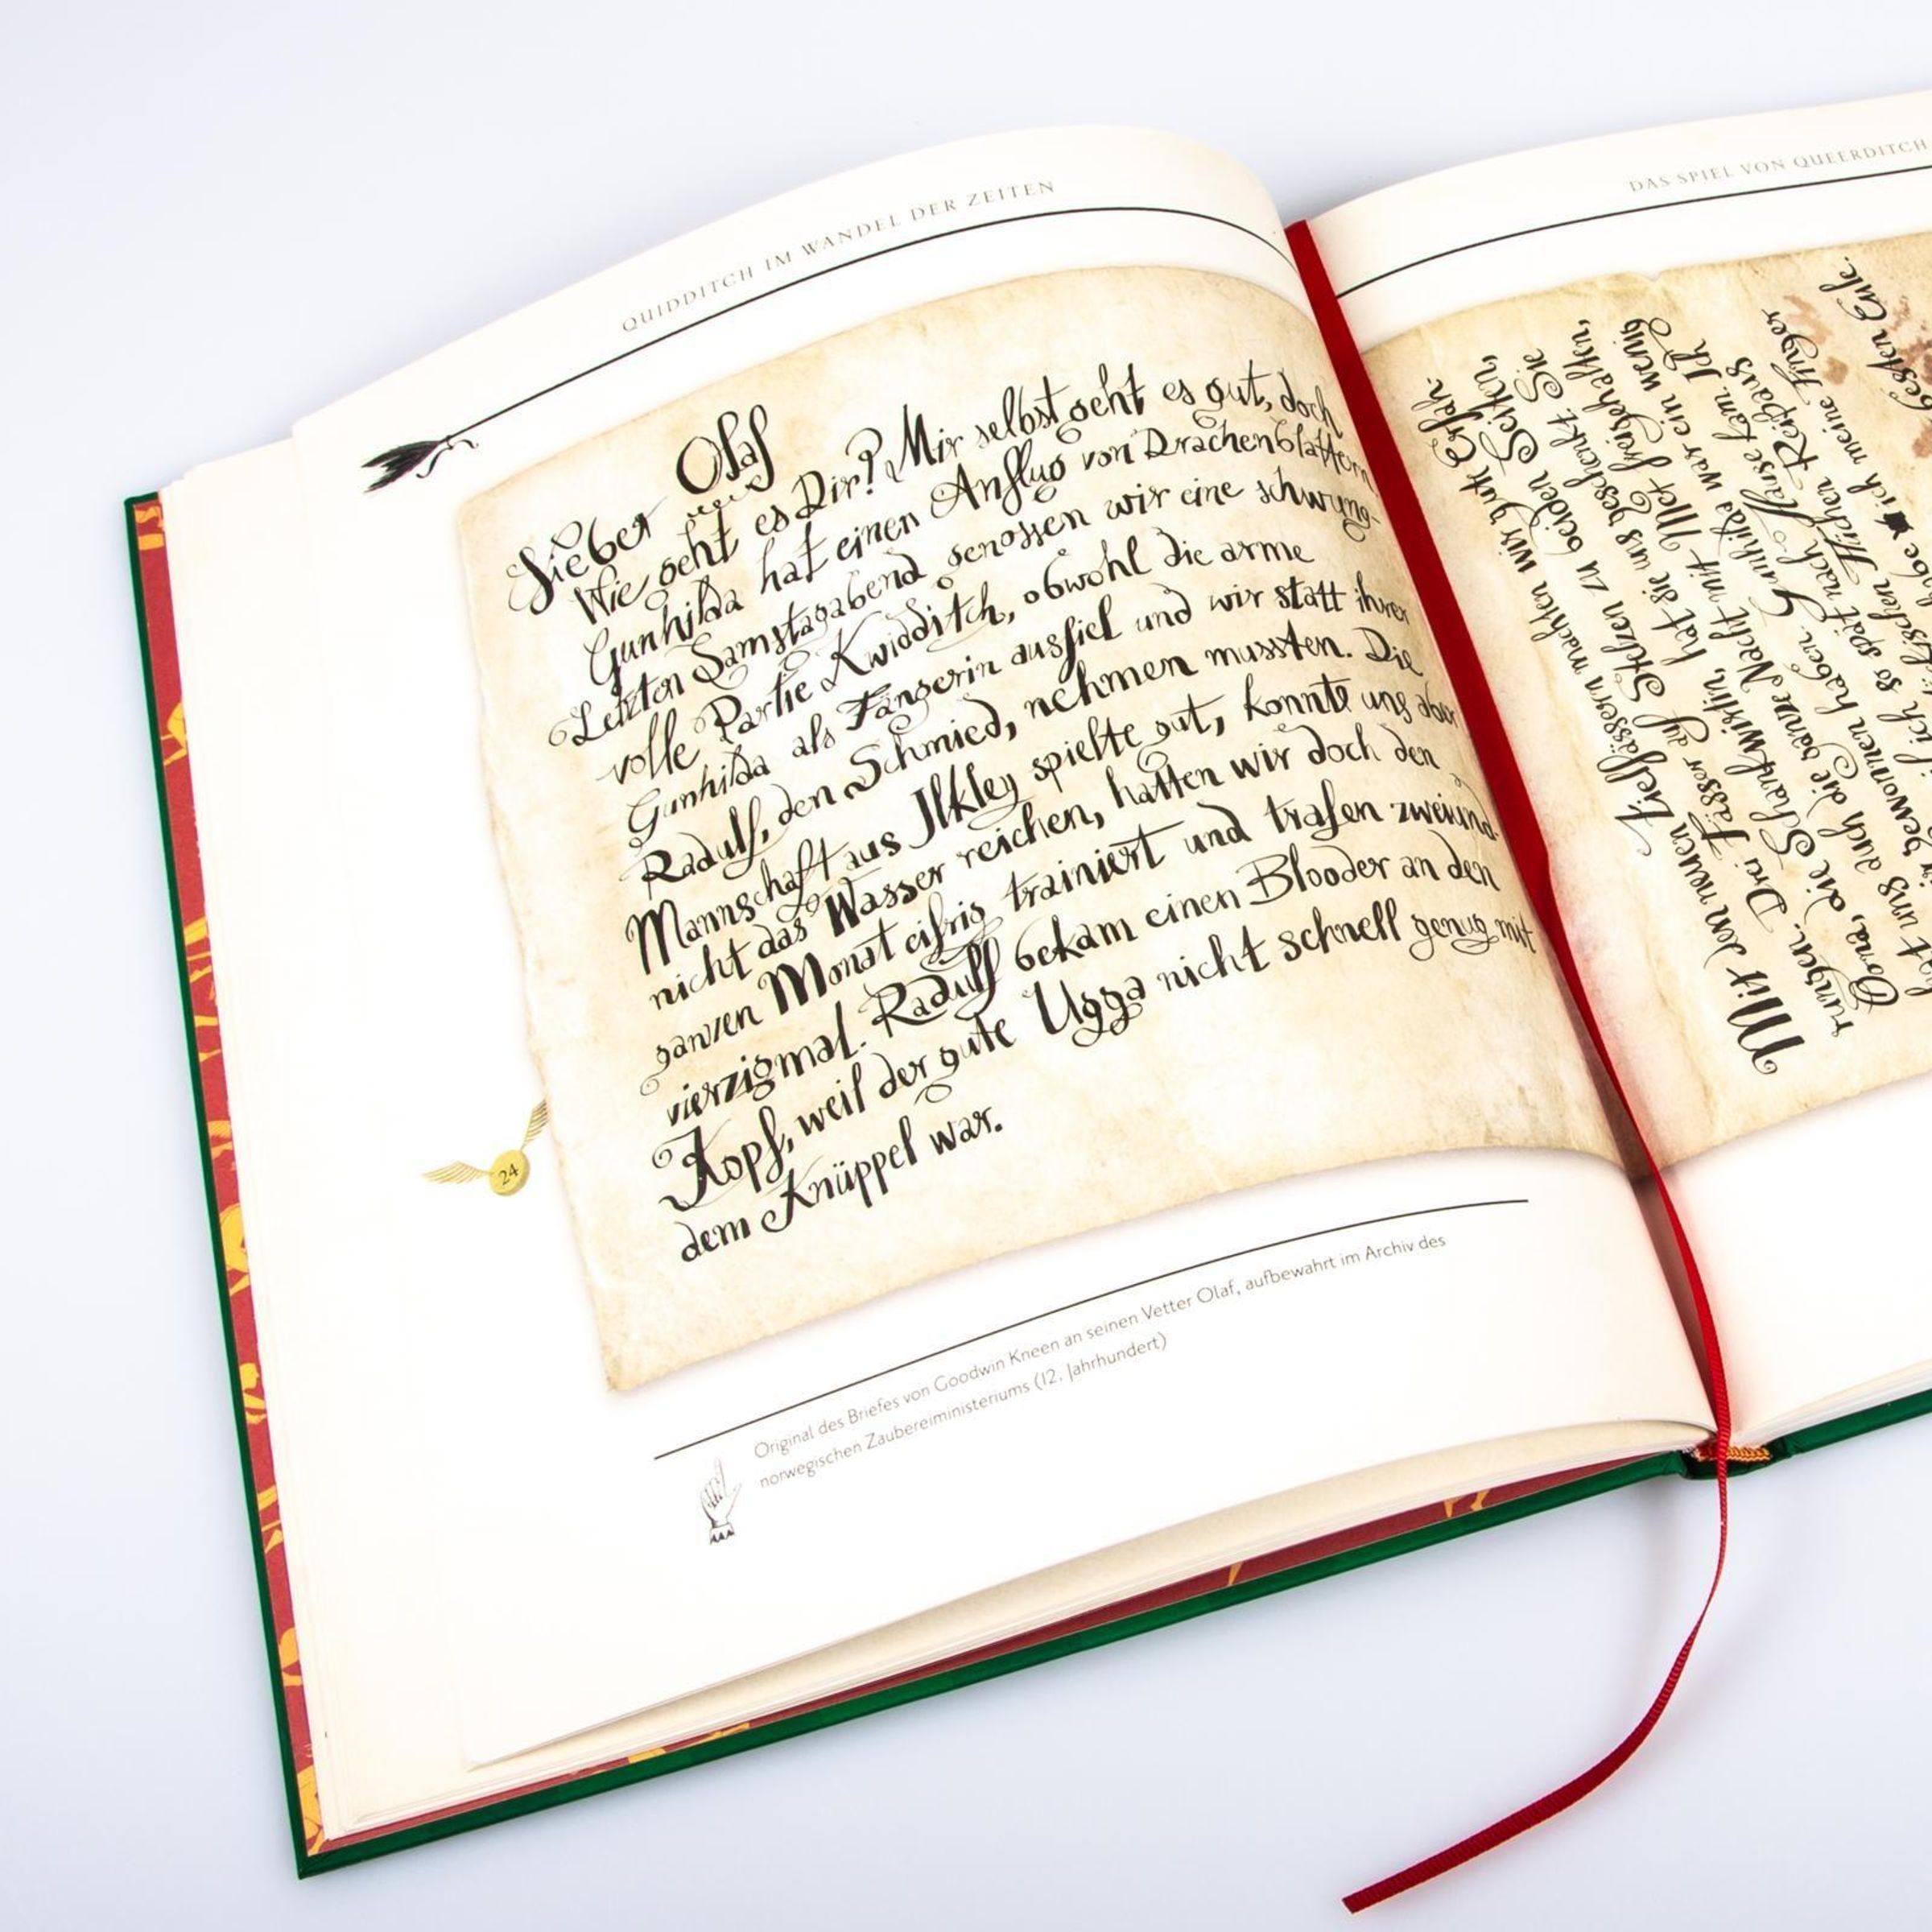 QUIDDITCH IM WANDEL DER ZEITEN
Lieber Olaf
Wie geht es Dir? Mir selbst geht es gut, doch
Gunhilda hat einen Anflug von Drachenblattern.
Letzten Samstagabend genossen wir eine schwung-
volle Partie Kwidditch, obwohl die arme
Gunhilda als Fängerin ausfiel und wir statt ihrer
Radulf, den Schmied, nehmen mussten. Die
Mannschaft aus Ilkley spielte gut, konnte uns aber
nicht das Wasser reichen, hatten wir doch den
ganzen Monat eifrig trainiert und trafen zweiund-
vierzigmal. Radulf bekam einen Blooder an den
Kopf, weil der gute Ugga nicht schnell genug mit
dem Knüppel war.
24
Original des Briefes von Goodwin Kneen an seinen Vetter Olaf, aufbewahrt im Archiv des
norwegischen Zaubereiministeriums (12. Jahrhundert)
DAS SPIEL VON QUEERDITCH
Mit den neuen Zielfässern machten wir gute Erfah-
rungen. Drei Fässer auf Stelzen zu beiden Seiten,
Oona, die Schankwirtin, hat sie uns geschenkt. Sie
hat uns auch die ganze Nacht mit Met freigehalten,
wir gewonnen haben. Gunhilda war ein wenig
weil ich so spät nach Hause kam. Ich
tischen Flüchen Reißaus
habe ich meine Finger
besten Eule.